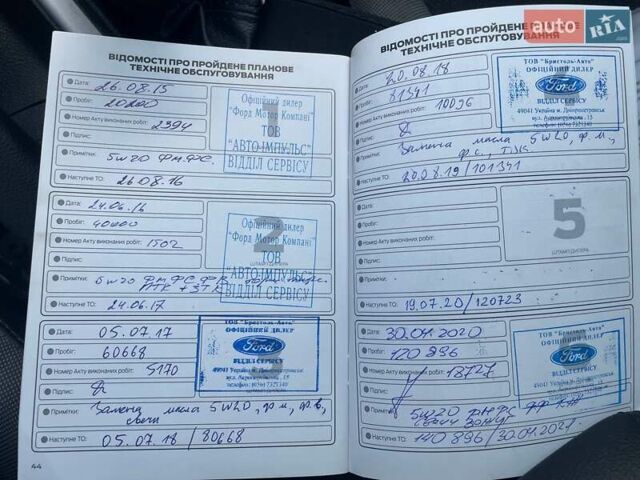 ВІДОМОСТІ ПРО ПРОЙДЕНЕ ПЛАНОВЕ
ТЕХНІЧНЕ ОБСЛУГОВУВАННЯ
Дата: 26.08.15
Пробіг: 20200
Номер Акту виконаних робіт: 2394
Підпис:
Примітки: 5W20 ФМ.ФС.
Наступне ТО: 26.08.16
Офіційний дилер
"Форд Мотор Компані"
ТОВ
"АВТОІМПУЛЬС"
ВІДДІЛ СЕРВІСУ
Дата: 24.06.16
Пробіг: 40000
Номер Акту виконаних робіт: 1502
Підпис:
Примітки: 5W20 ФМ ФС
Наступне ТО: 24.06.17
2
Офіційний дилер
"Форд Мотор Компані"
ТОВ
"АВТОІМПУЛЬС"
ВІДДІЛ СЕРВІСУ
Дата: 05.07.17
Пробіг: 60668
Номер Акту виконаних робіт: 5170
Підпис:
Примітки: Замена масла 5W20, ф.м, ф.в,
свечи
Наступне ТО: 05.07.18 / 80668
ТОВ "Бристоль-Авто"
ОФІЦІЙНИЙ ДИЛЕР
Ford
ВІДДІЛ СЕРВІСУ
49041 Україна м. Дніпропетровськ
44
ВІДОМОСТІ ПРО ПРОЙДЕНЕ
ТЕХНІЧНЕ ОБСЛУГОВУВАННЯ
auto RIA
Дата: 20.08.18
Пробіг: 81341
Номер Акту виконаних робіт: 10096
Підпис:
Примітки: Замена масла 5W20, ф.м.,
ф.с.,
Наступне ТО: 20.08.19 / 101341
ТОВ "Бристоль-Авто"
ОФІЦІЙНИЙ ДИЛЕР
Ford
ВІДДІЛ СЕРВІСУ
49041 Україна м. Дніпропетровськ
Дата:
Пробіг:
Номер Акту виконаних робіт:
Підпис:
Примітки:
Наступне ТО: 19.07.20 / 120723
5
ШТАМП ДИЛЕРА
Дата: 30.04.2020
Пробіг: 120896
Номер Акту виконаних робіт: 18727
Підпис:
Примітки: 5W20 ФМ ФС ФФ
Наступне ТО: 140896 / 30.04.2021
ТОВ "Бристоль-Авто"
ОФІЦІЙНИЙ ДИЛЕР
Ford
ВІДДІЛ СЕРВІСУ
49041 Україна м. Дніпропетровськ